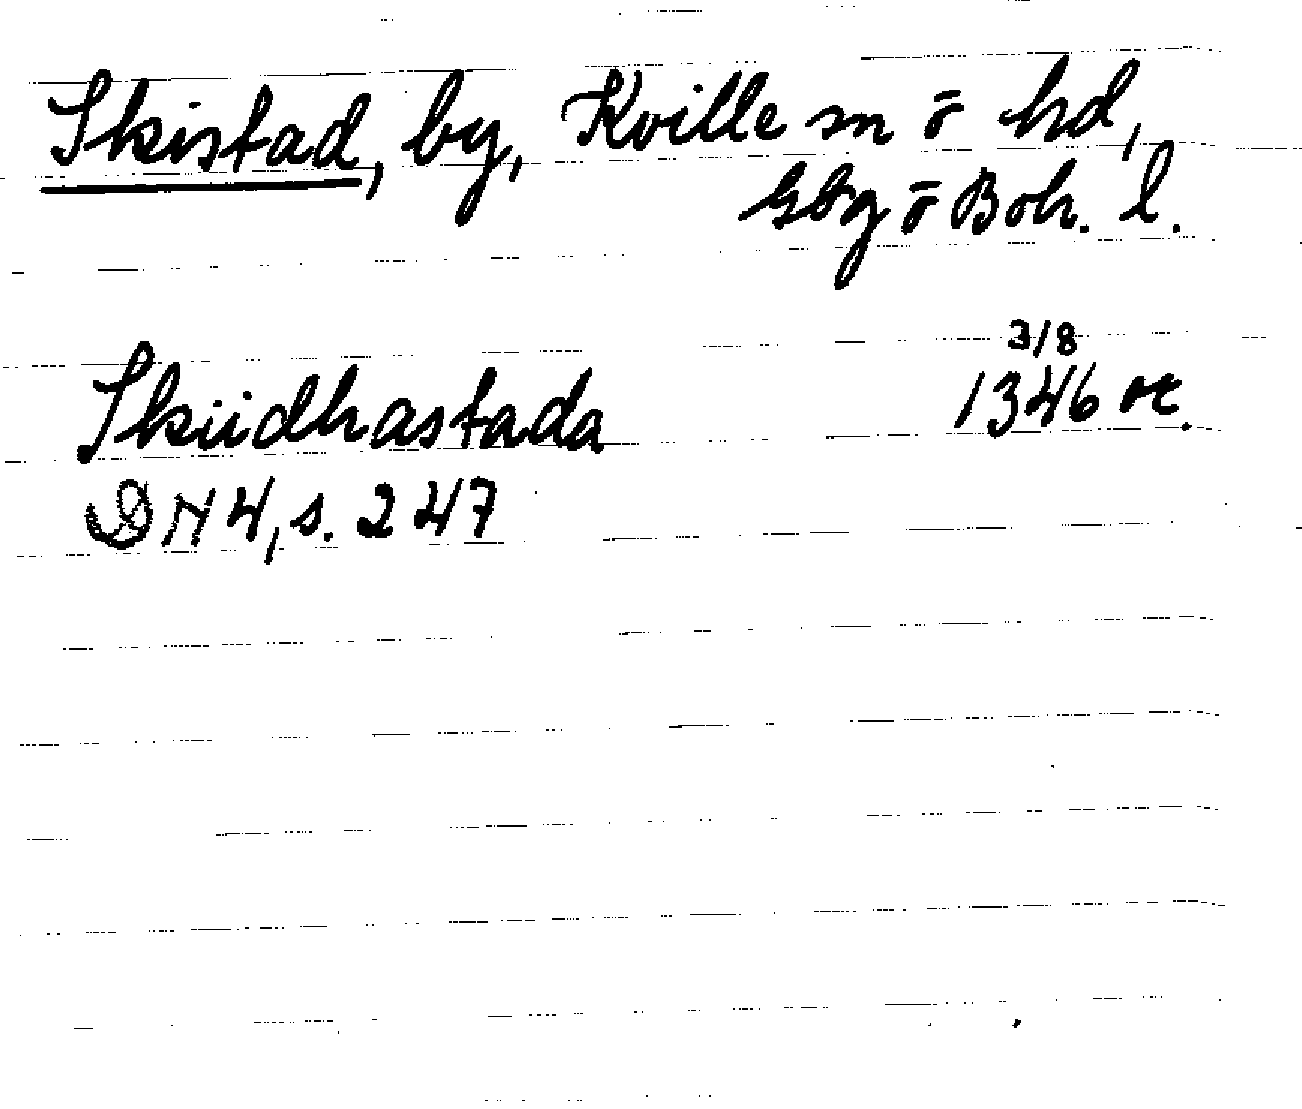 Skistad, by, Kville sn ō hd,
Gbg ō Boh. l.
3/8
Skiidhastada 1346 or.
DN 4, s. 247